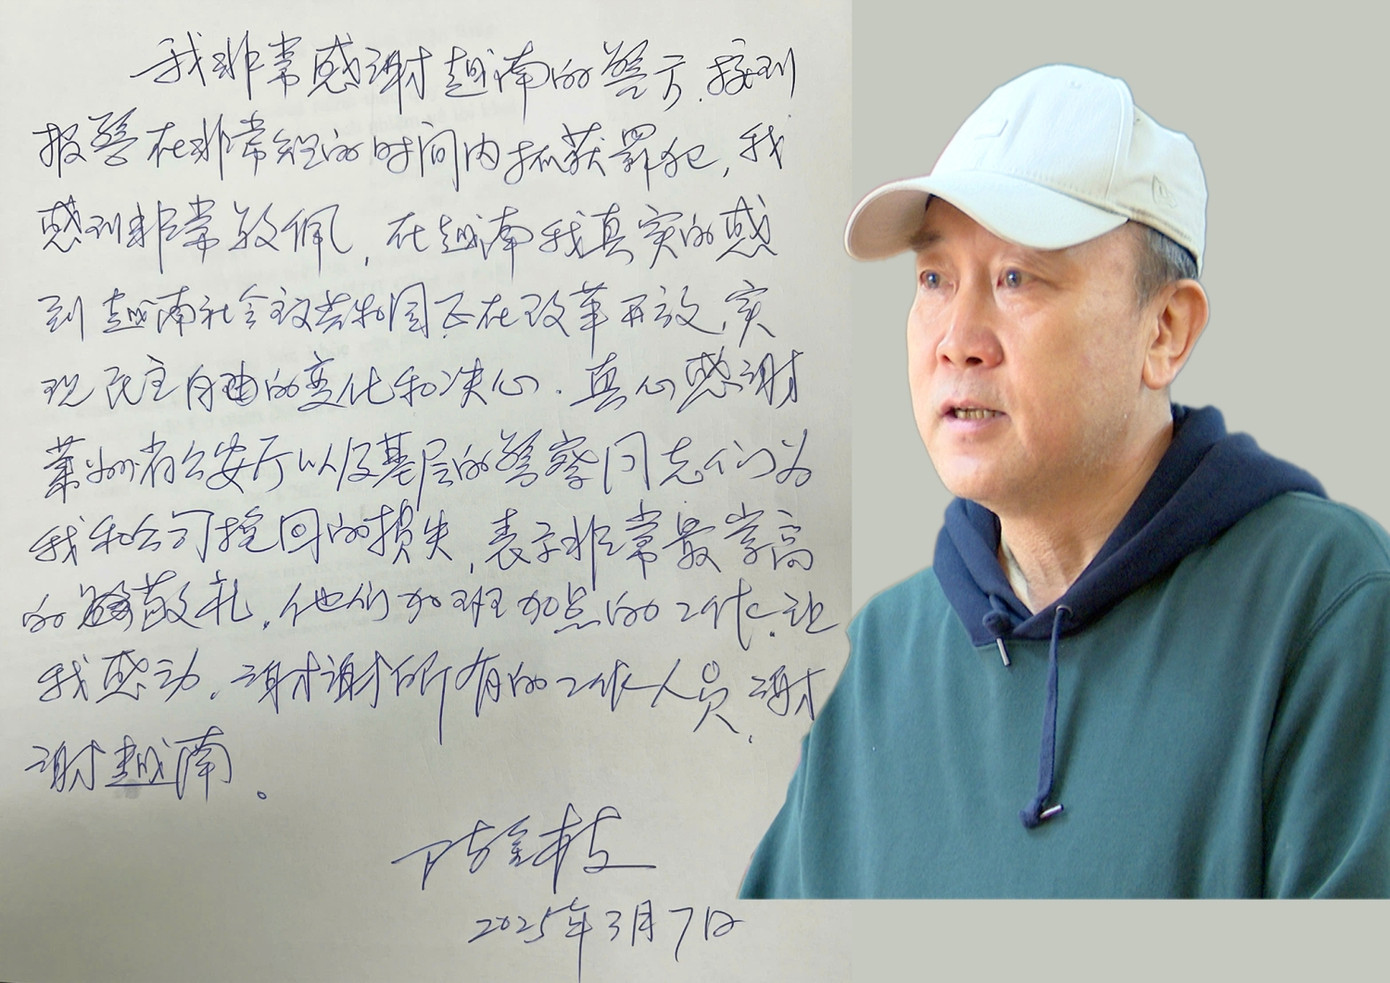 我非常感谢越南的警方,接到
报警在非常短的时间内抓获罪犯,我
感到非常敬佩,在越南我真实的感
到越南社会主义共和国正在改革开放,实
现民主自由的变化和决心.真心感谢
莱州省公安厅以及基层的警察同志们为
我和公司挽回的损失,表示非常最崇高
的敬礼.他们加班加点的工作.让
我感动.谢谢所有的工作人员.谢
谢越南。
2025年3月7日